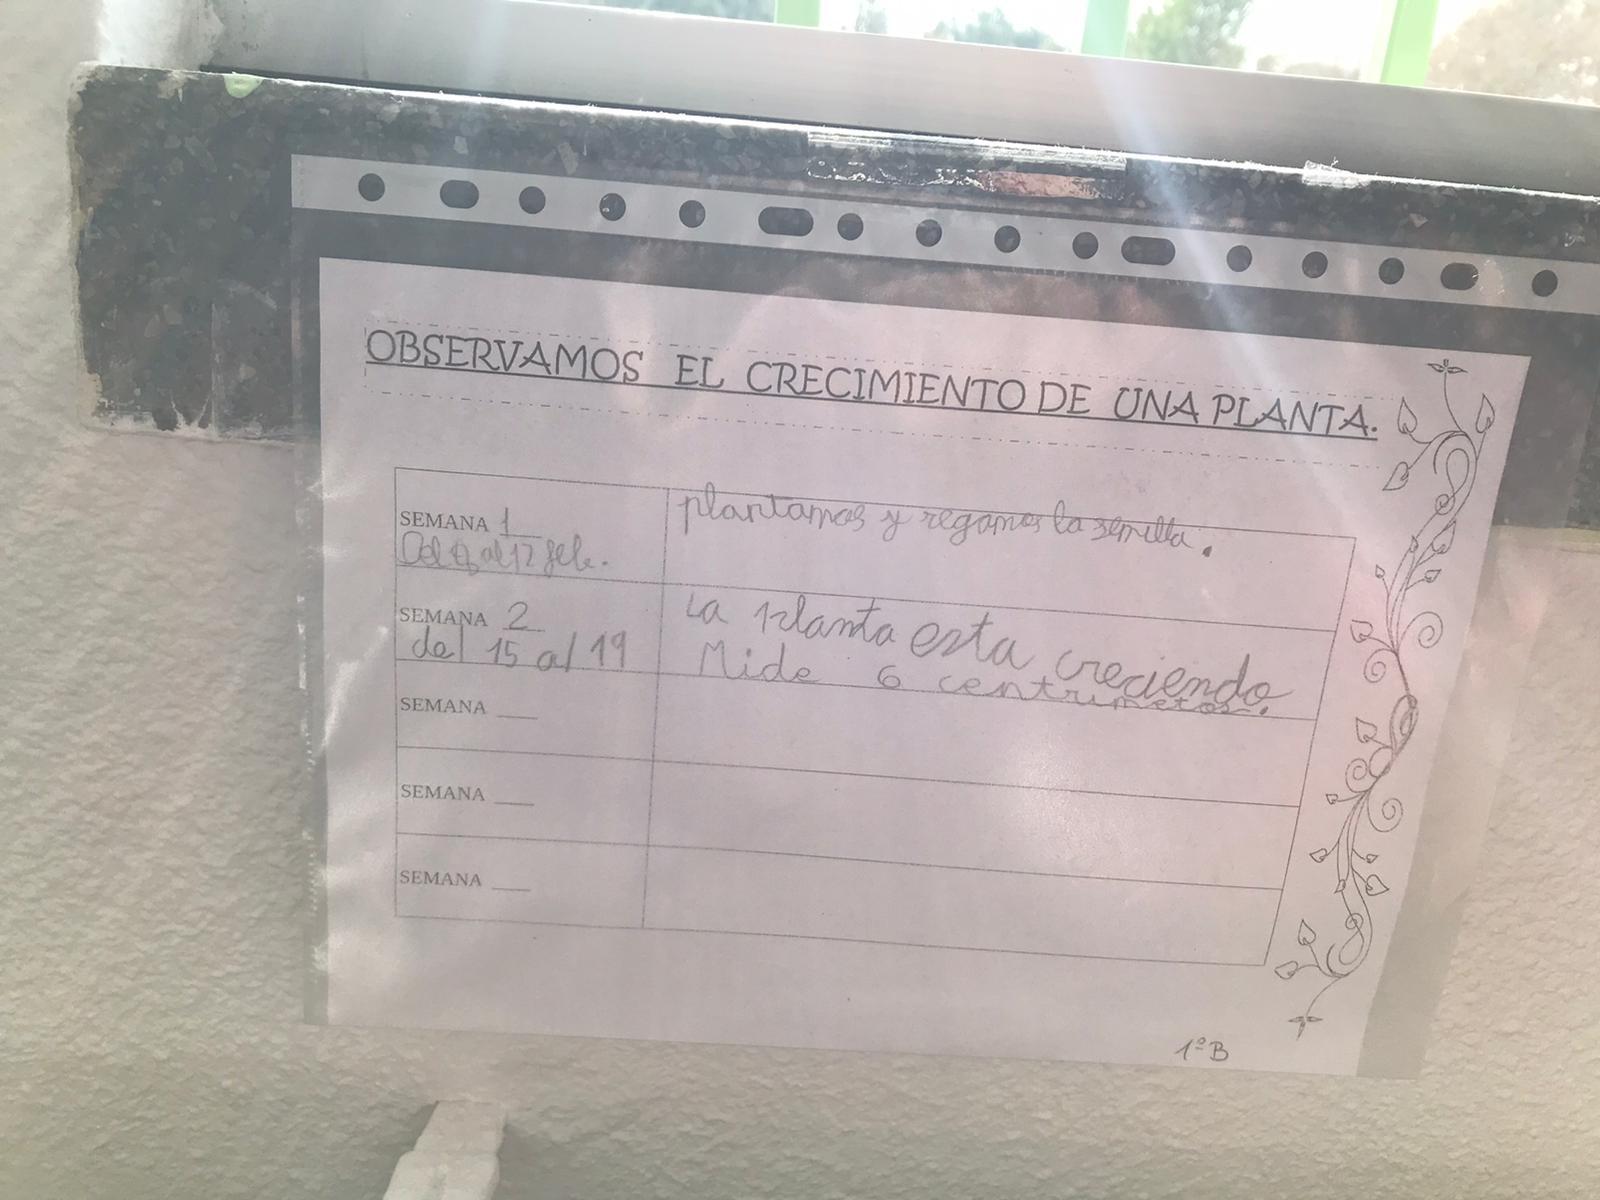 OBSERVAMOS EL CRECIMIENTO DE UNA PLANTA.
SEMANA 1
Del al 12 feb.
plantamos y regamos la semilla.
SEMANA 2
del 15 al 19
La planta esta creciendo
Mide 6 centrimetos.
SEMANA
SEMANA
SEMANA
1ºB